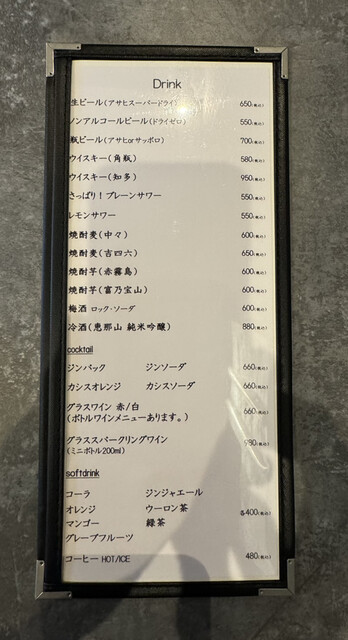 Drink
生ビール(アサヒスーパードライ) 650(税込)
ノンアルコールビール(ドライゼロ) 550(税込)
瓶ビール(アサヒorサッポロ) 700(税込)
ウイスキー(角瓶) 580(税込)
ウイスキー(知多) 950(税込)
さっぱり！プレーンサワー 550(税込)
レモンサワー 550(税込)
焼酎麦(中々) 600(税込)
焼酎麦(吉四六) 650(税込)
焼酎芋(赤霧島) 600(税込)
焼酎芋(富乃宝山) 600(税込)
梅酒 ロック・ソーダ 600(税込)
冷酒(恵那山 純米吟醸) 880(税込)
cocktail
ジンバック ジンソーダ 660(税込)
カシスオレンジ カシスソーダ 660(税込)
グラスワイン 赤/白 660(税込)
(ボトルワインメニューあります。)
グラススパークリングワイン 980(税込)
(ミニボトル200ml)
softdrink
コーラ ジンジャエール
オレンジ ウーロン茶 各400(税込)
マンゴー 緑茶
グレープフルーツ
コーヒー HOT/ICE 480(税込)